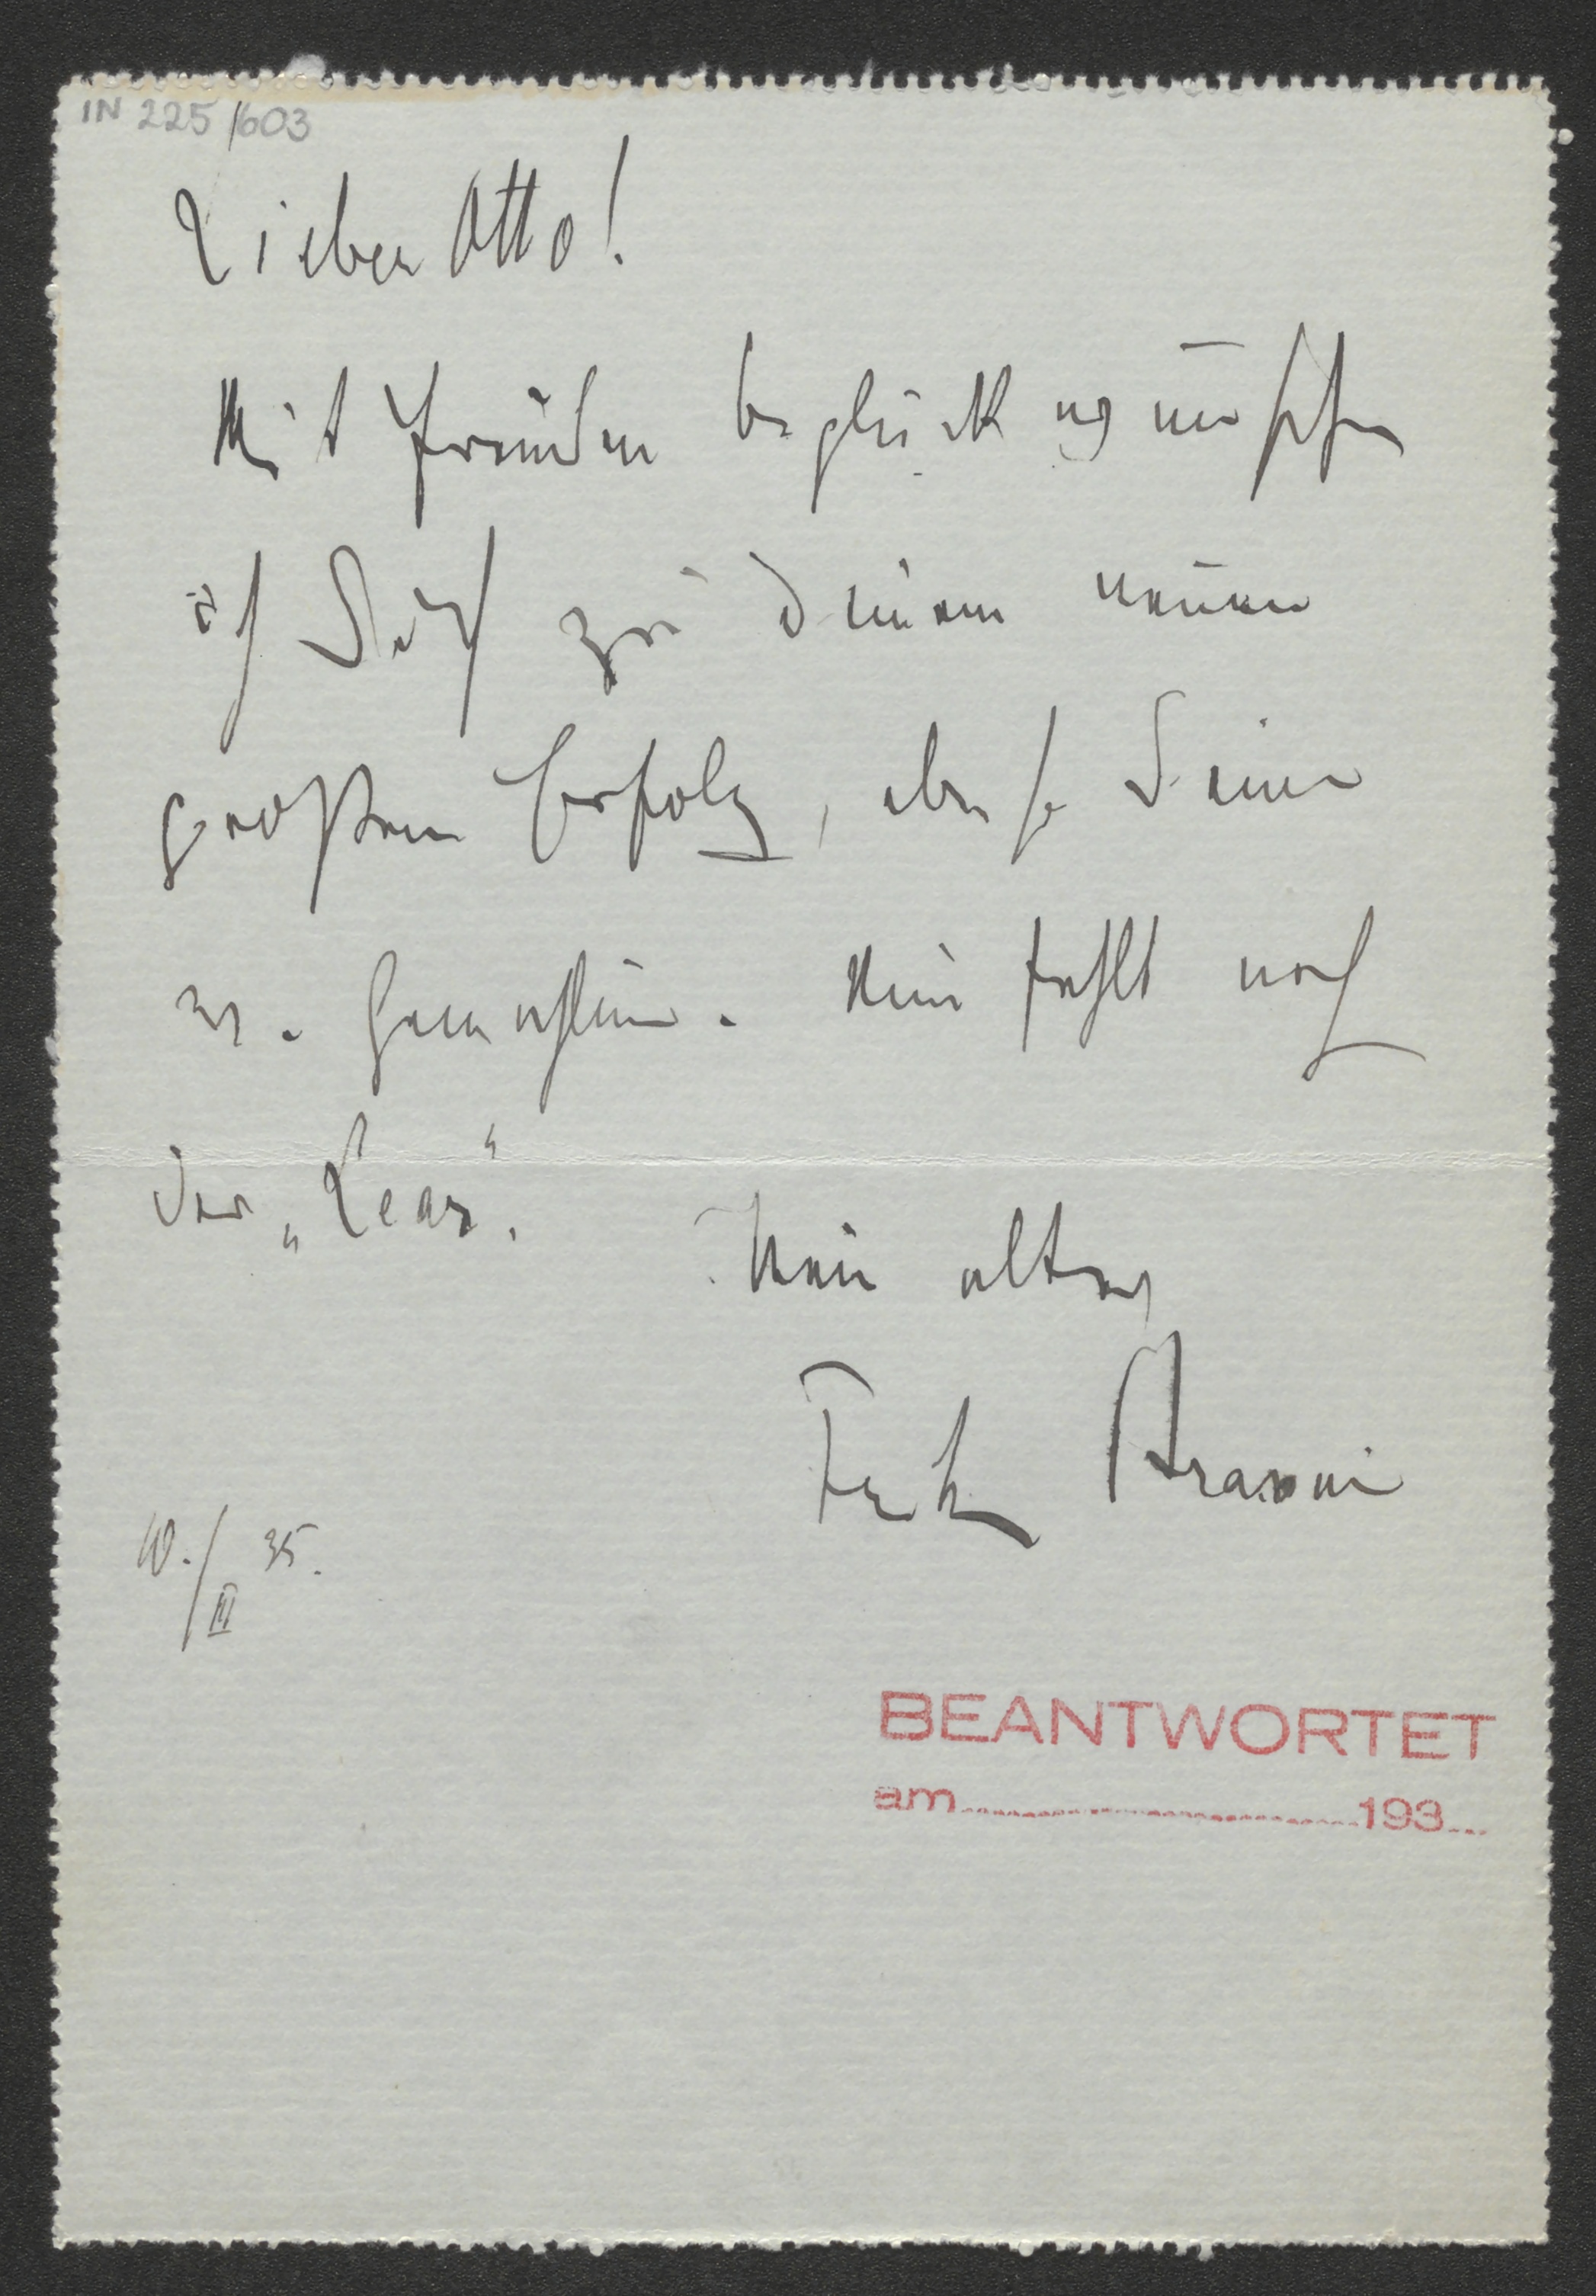 IN 225/603
Lieber Otto!
Mit Freuden beglückwünsche
ich Dich zu Deinem neuen
großen Erfolg, ebenso Deine
Fr. Gemahlin. Nun fehlt noch
der „Lear".
Dein alter
Felix Braun
10./III 35.
BEANTWORTET
am 193